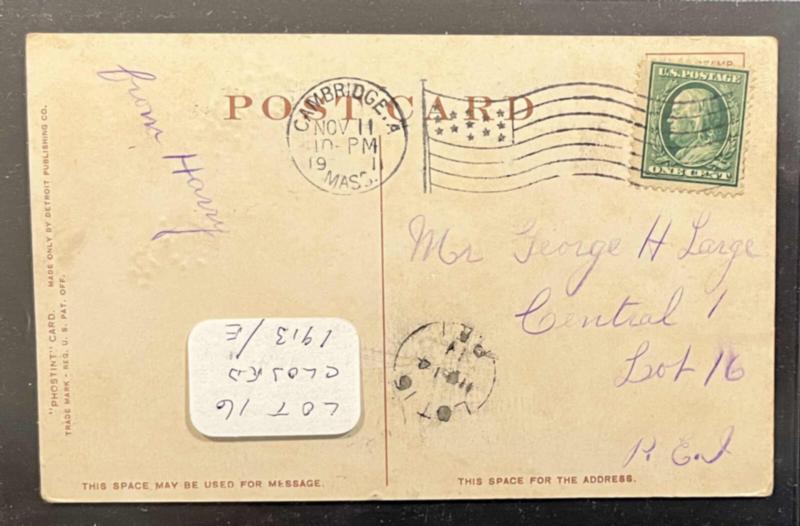 POST CARD
CAMBRIDGE, A
NOV 11
10-PM
19 11
MASS.
U.S. POSTAGE
ONE CENT
from Harry
Mr George H Large
Central 1
Lot 16
P. E. I
"PHOSTINT" CARD. MADE ONLY BY DETROIT PUBLISHING CO.
TRADE MARK - REG. U. S. PAT. OFF.
LOT 16
CLOSED
1913/E
LOT 16
P.E.I
THIS SPACE MAY BE USED FOR MESSAGE.
THIS SPACE FOR THE ADDRESS.